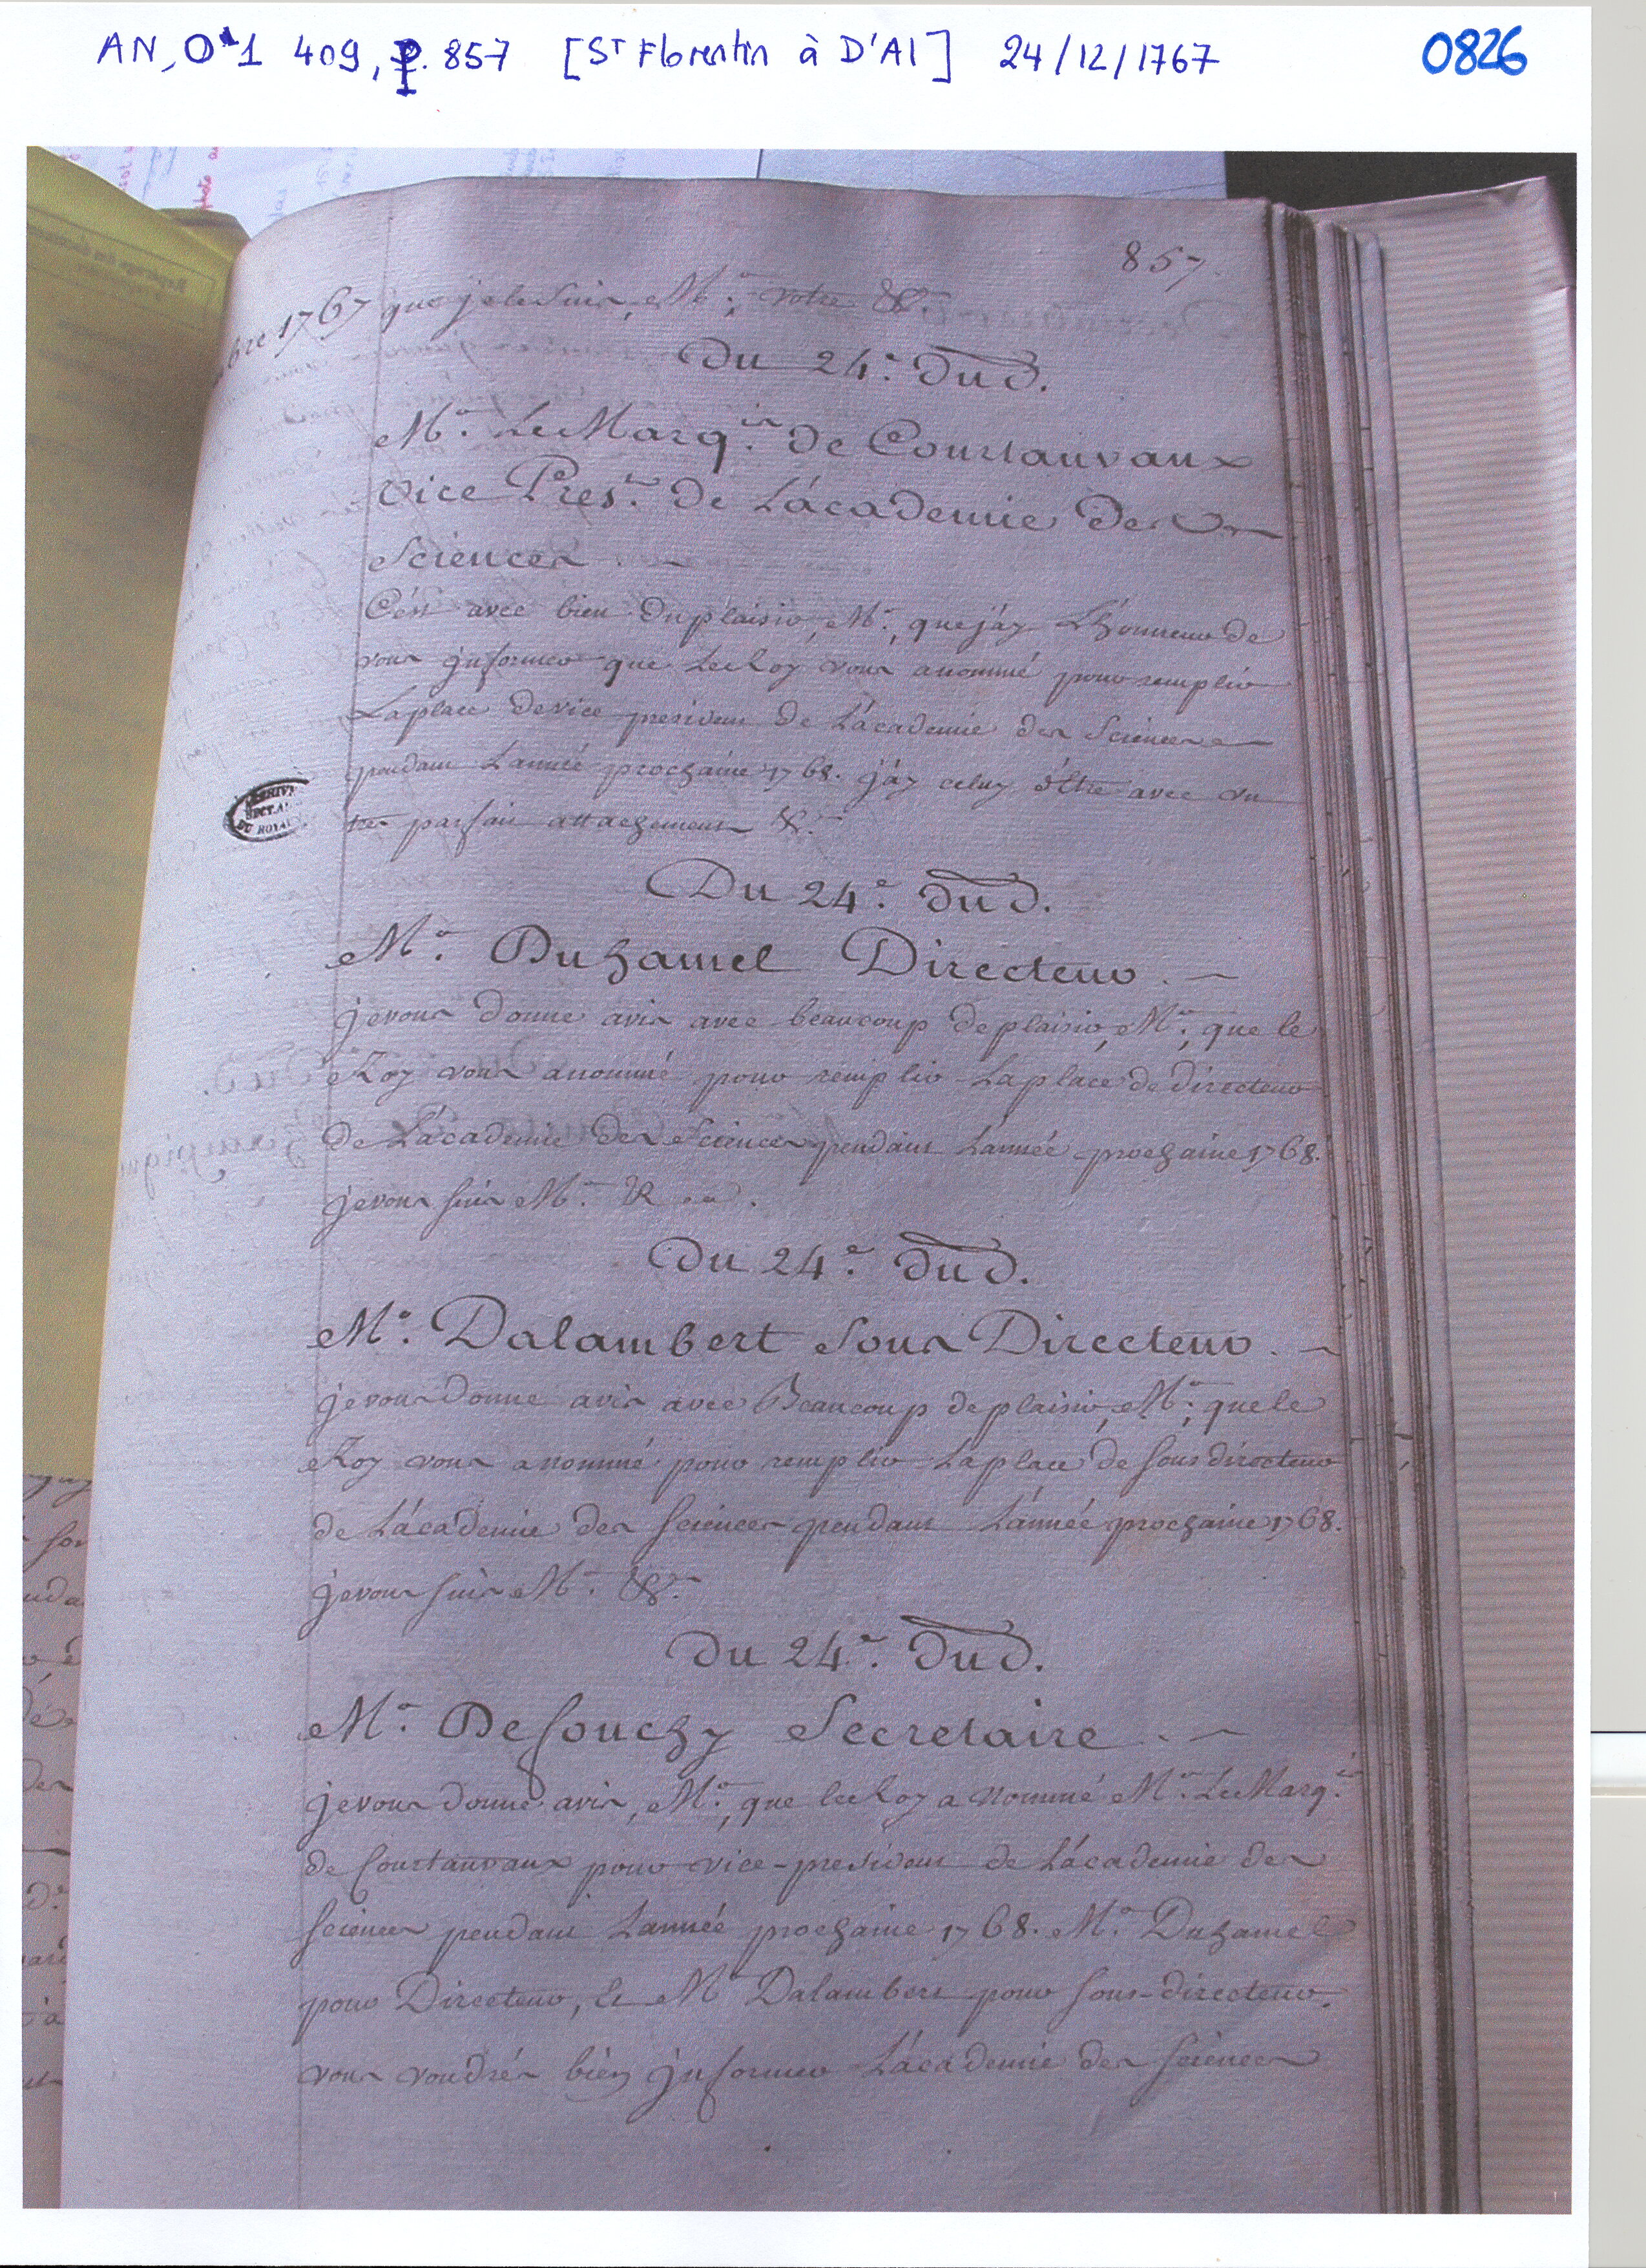 AN, O*1 409, P. 857 [St Florentin à D'Al] 24/12/1767 0826
857
bre 1767 que je le suis, Mr, votre &c.
Du 24e. dud.
Mr. Le Marqis. de Courtanvaux
Vice Prest. de L'académie des
Sciences
C'est avec bien du plaisir, Mr., que j'ay L'honneur de
vous jnformer que Le Roy vous a nommé pour remplir
La place de vice president de L'academie des Sciences
pendant L'année prochaine 1768. j'ay celuy d'Etre avec un
tres parfait attachement &c.
Du 24e. dud.
Mr. Duhamel Directeur.
je vous donne avis avec beaucoup de plaisir, Mr., que le
Roy vous a nommé pour remplir La place de directeur
de L'academie des Sciences pendant L'année prochaine 1768.
je vous suis Mr.
Du 24e. dud.
Mr. Dalambert Sous Directeur.
je vous donne avis avec Beaucoup de plaisir, Mr., que le
Roy vous a nommé pour remplir La place de sous directeur
de L'academie des Sciences pendant L'année prochaine 1768.
je vous suis Mr. &c.
Du 24e. dud.
Mr. Defouchy Secretaire.
je vous donne avis, Mr., que le Roy a nommé Mr. Le Marqis.
de Courtanvaux pour vice-president de L'academie des
Sciences pendant L'année prochaine 1768. Mr. Duhamel
pour Directeur, Et Mr Dalambert pour sous-directeur.
vous voudrés bien jnformer L'academie des Sciences